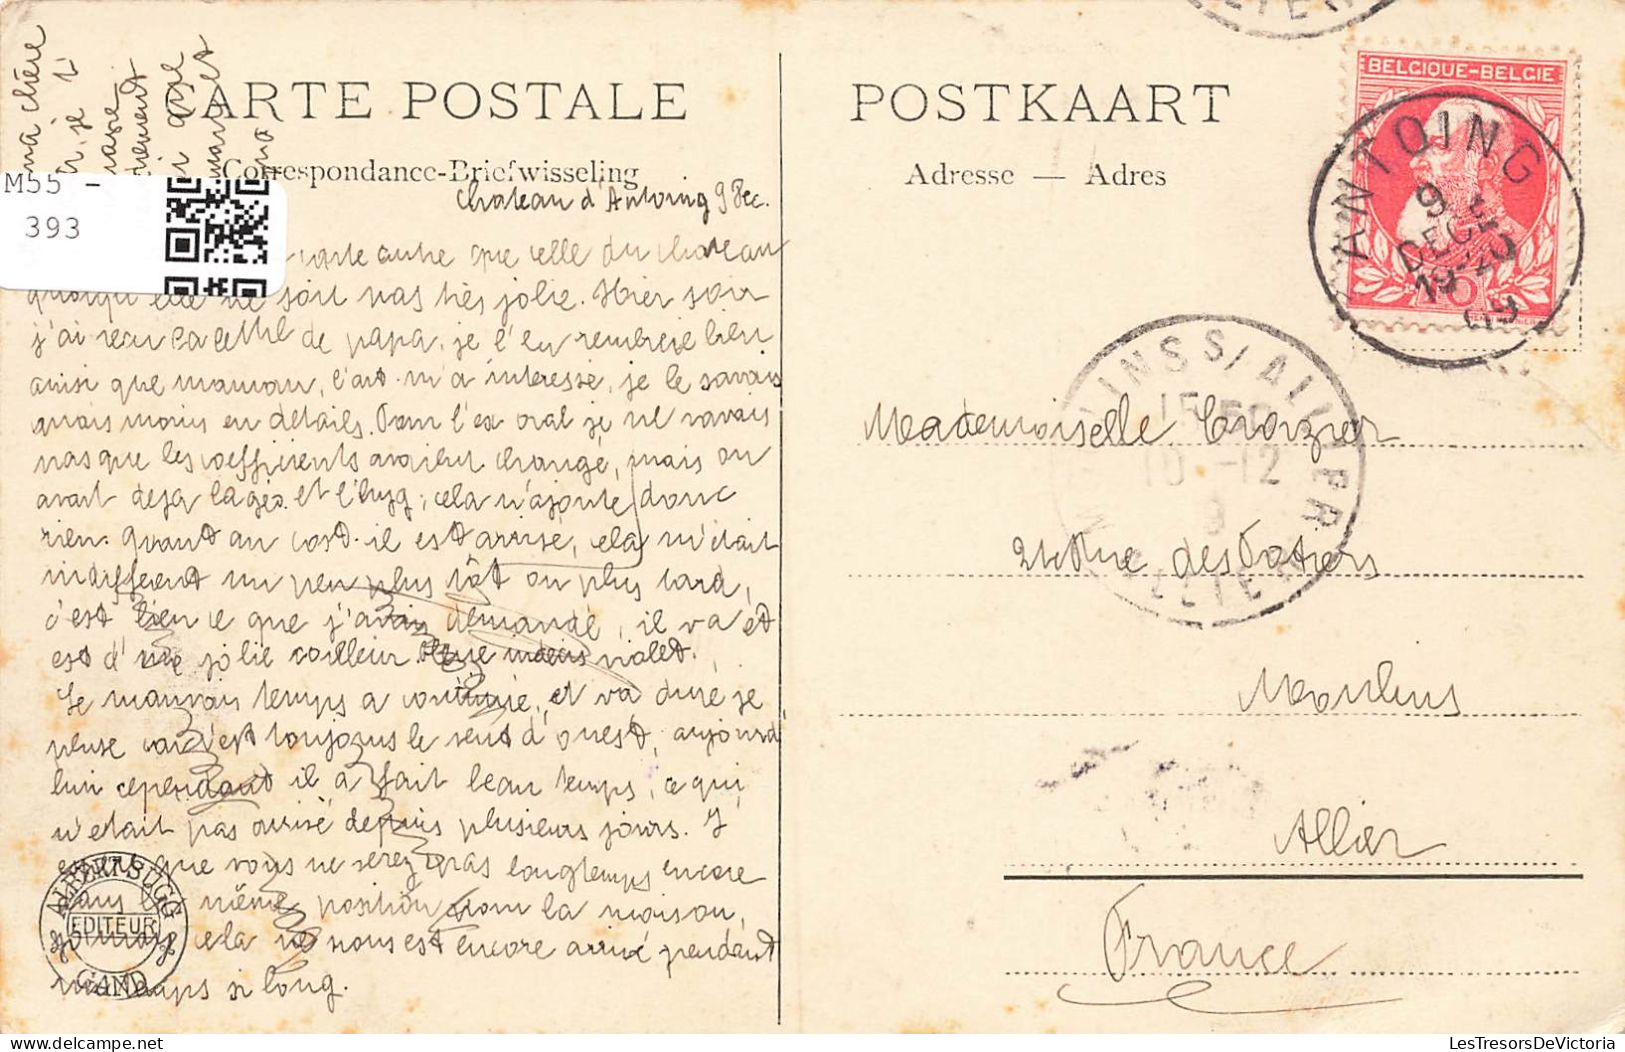 CARTE POSTALE
Correspondance-Briefwisseling
Château d'Antoing 9 Dec.
ma chère
je
M55 -
393
carte autre que celle du chateau
quoiqu'elle ne soit pas très jolie. Hier soir
j'ai reçu la lettre de papa, je l'en remercie bien
ainsi que maman, l'art. m'a intéressé, je le savais
mais moins en détails. Pour l'ex oral je ne savais
pas que les coefficients avaient changé, mais on
avait déjà la géo. et l'hyg, cela n'ajoute donc
rien. Quant au cost. il est arrivé, cela m'était
indifférent un peu plus tôt ou plus tard,
c'est bien ce que j'avais demandé, il va et
est d'une jolie couleur bleue violet.
Le mauvais temps a continué, et va durer je
pense car c'est toujours le vent d'ouest, aujourd'
hui cependant il a fait beau temps, ce qui
n'était pas arrivé depuis plusieurs jours. J'
espère que vous ne serez pas longtemps encore
dans la même position pour la maison,
jamais cela ne nous est encore arrivé pendant
un temps si long.
ALBERT SUGG
EDITEUR
GAND
POSTKAART
Adresse — Adres
BELGIQUE-BELGIE
10
ANTOING
9
DEC
19-20
09
MOULINS S/ALLIER
10 -12
9
Mademoiselle Crozier
24 Rue des Potiers
Moulins
Allier
France
LesTresorsDeVictoria.com